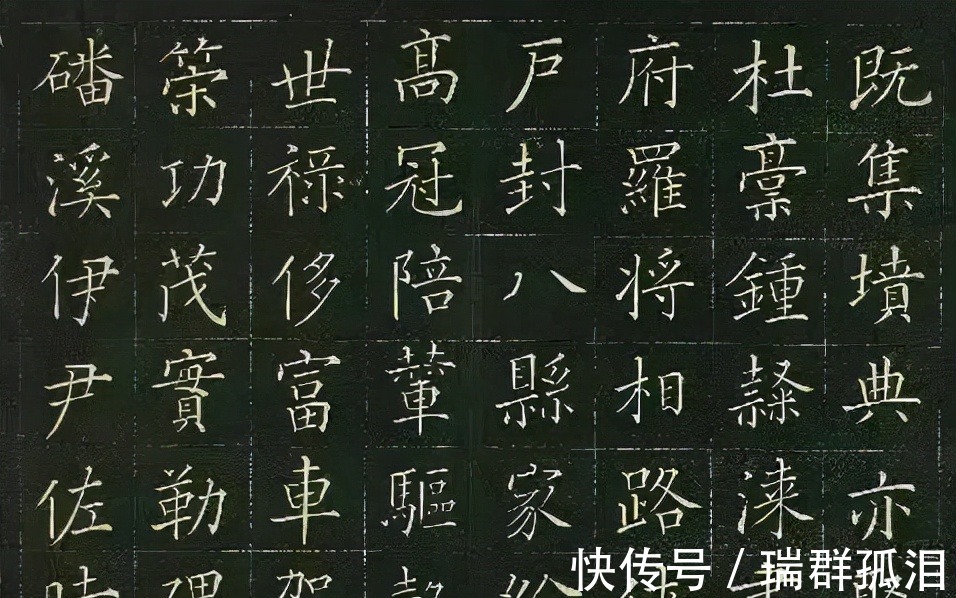 既集墳典亦
杜稾鍾隸漆
府羅将相路
户封八縣家
髙冠陪輦驅
世禄侈富車
策功茂實勒
磻溪伊尹佐
快传号 / 瑞群孤泪